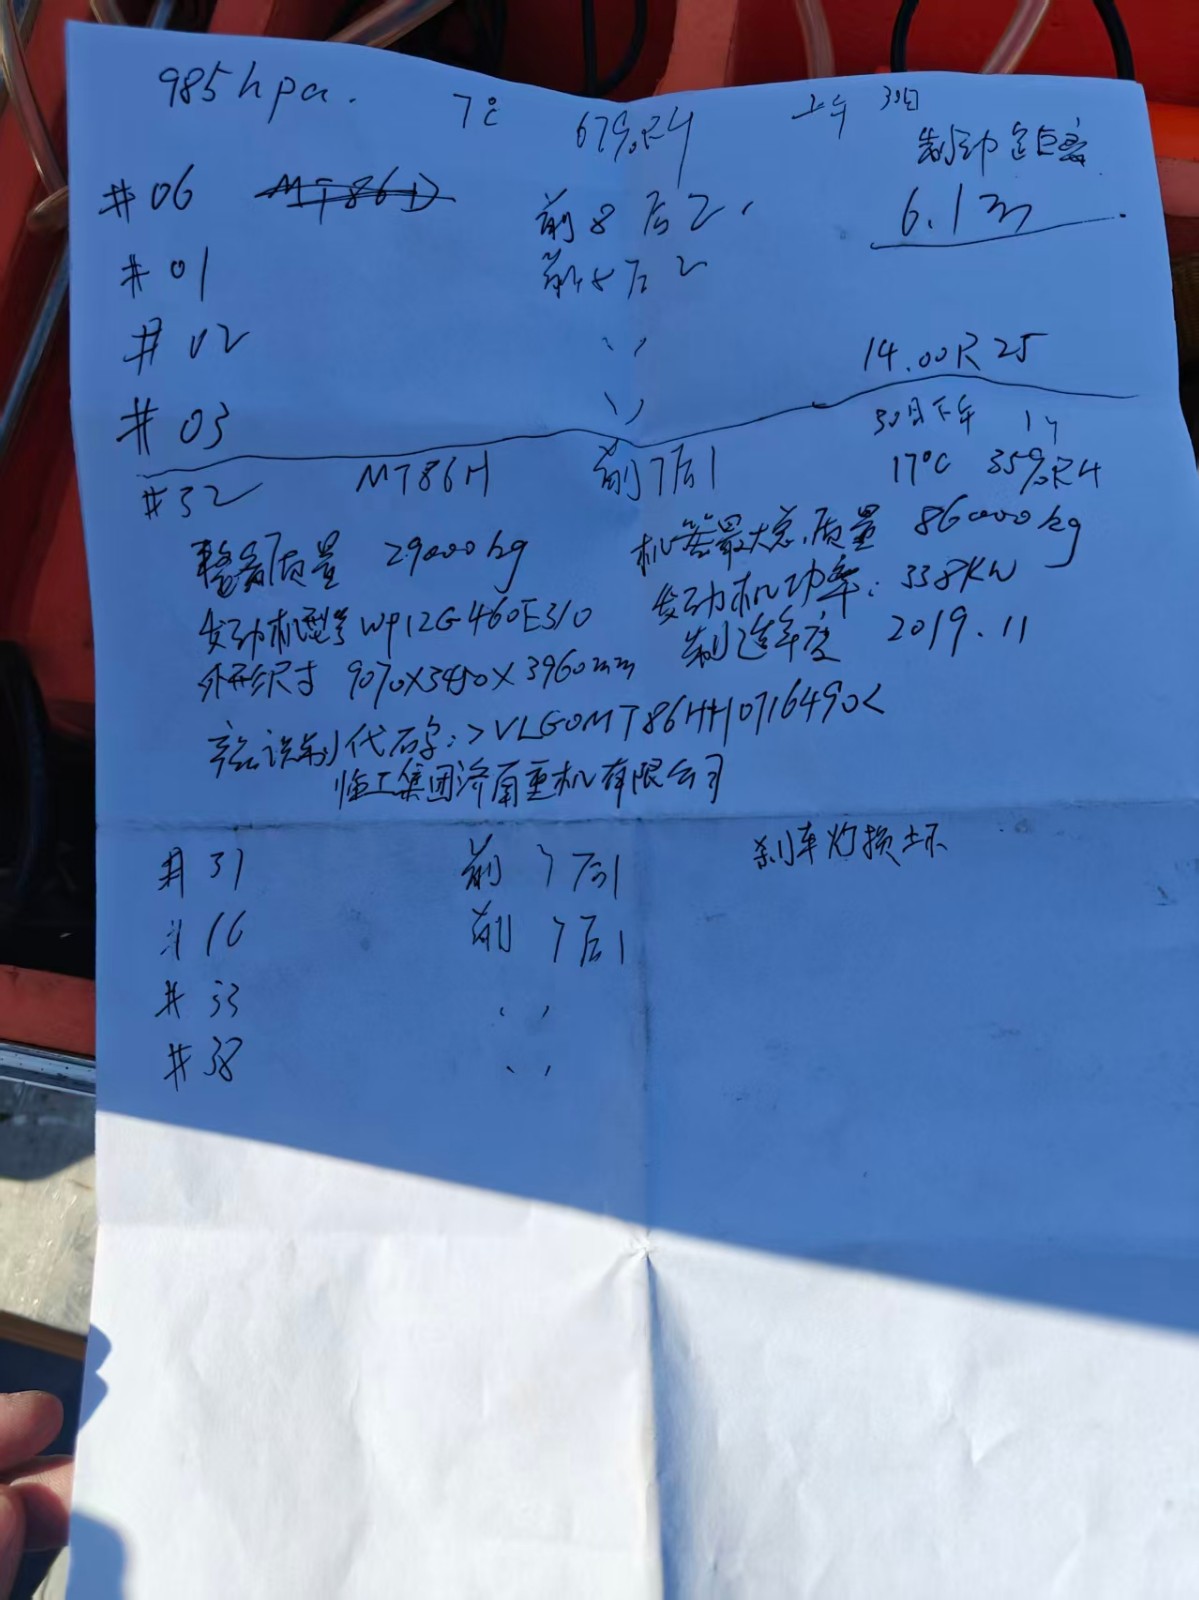 985hpa. 7℃ 67%RH 上午 30日
制动距离
#06 MT86D 前8后2. 6.1m
#01 前8后2
#02 〃
14.00R25
#03 〃
30日下午
#32 MT86H 前7后1 17℃ 35%RH
整备质量 29000kg 机器最大总质量 86000kg
发动机型号WP12G460E310 发动机功率:338KW
外形尺寸 9070X3450X3960mm 制造年度 2019.11
识别代码:>VLG0MT86HH0716490<
临工集团济南重机有限公司
#31 前7后1 刹车灯损坏
#16 前7后1
#33 〃
#38 〃